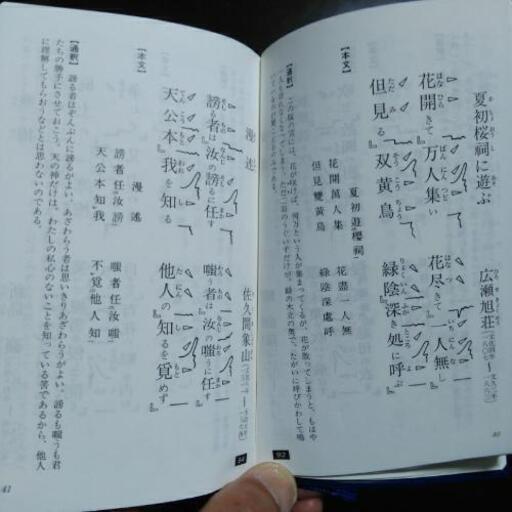 夏初桜祠に遊ぶ
広瀬旭荘
花開きて 万人集い
花尽きて 一人無し
但見る 双黄鳥
緑陰深き処に呼ぶ
【本文】
夏初遊櫻祠
花開萬人集 花盡一人無
但見雙黄鳥 緑陰深處呼
【通釈】
この桜の宮には、花が咲けば、何万という人が集まってくるが、花が散ってしまうと、もはや
92
40
漫述
佐久間象山
謗る者は 汝の謗るに任す
嗤う者は 汝の嗤うに任す
天公本 我を知る
他人の 知るを覓めず
【本文】
漫述
謗者任汝謗 嗤者任汝嗤
天公本知我 不覓他人知
【通釈】
謗る者はぞんぶんに謗るがよい。あざわらう者は思いきりあざわらうがよい。謗るも嗤うも君
たちの勝手にさせておこう。天の神だけは、わたしの私心のないことを知っている筈であるから、他人
に理解してもらおうなどとは思わないのである。
34
41